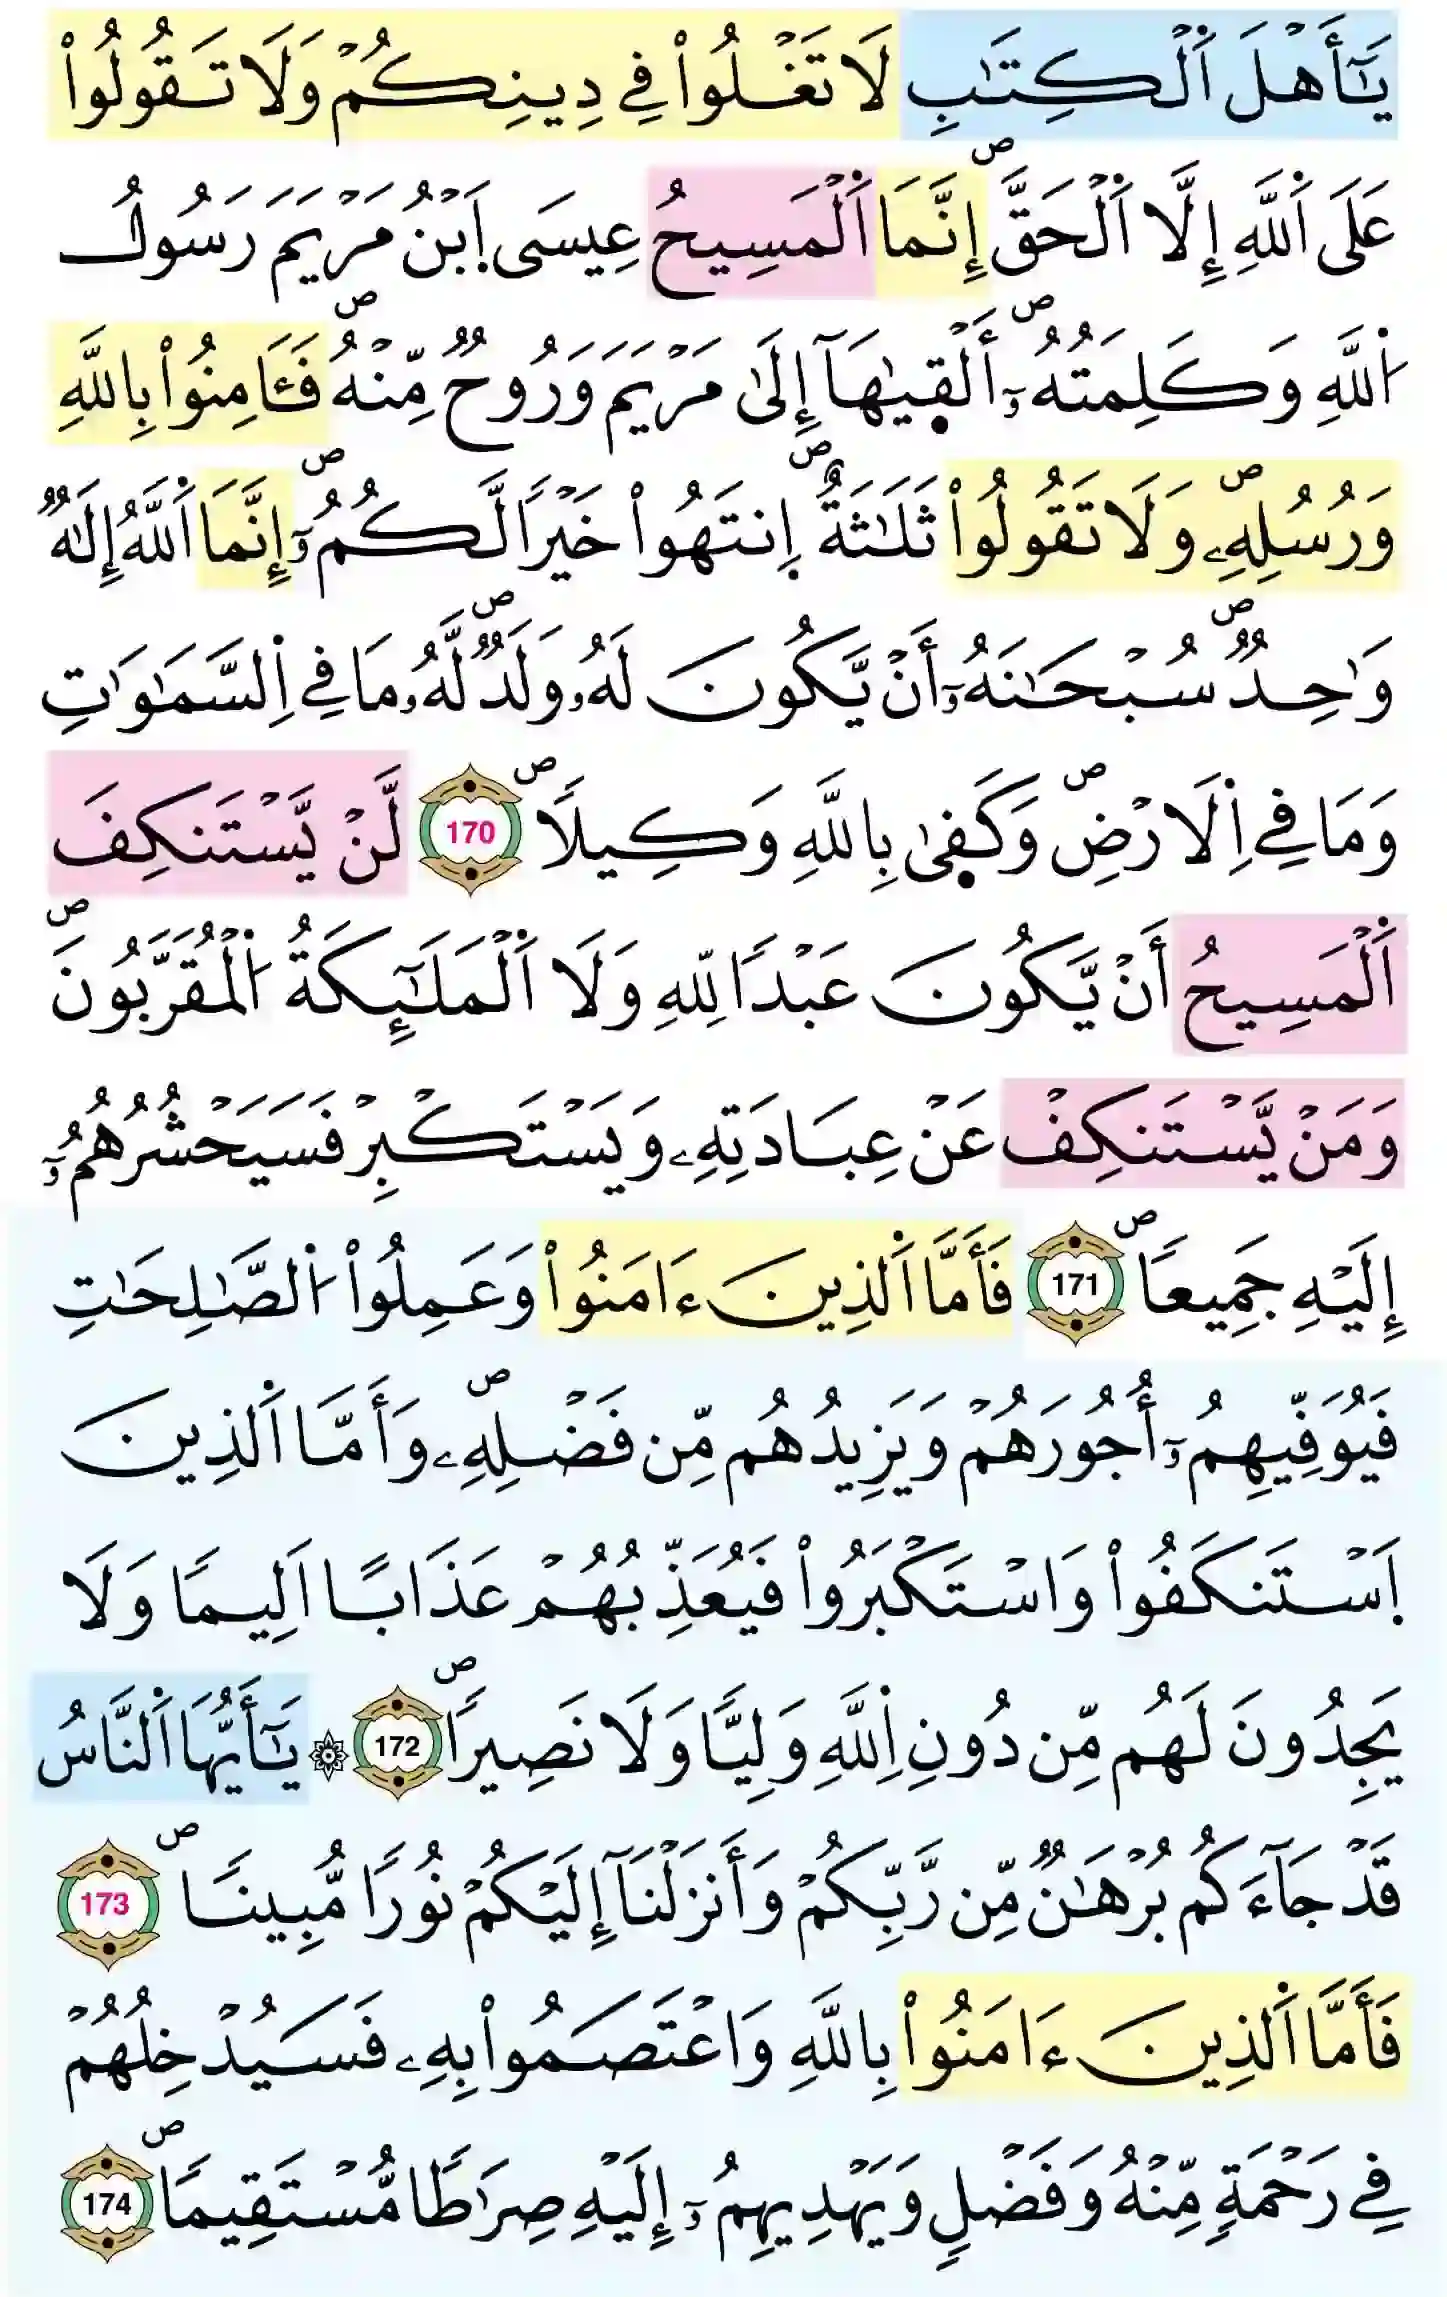 يَٰٓأَهْلَ اَ۬لْكِتَٰبِ لَا تَغْلُواْ فِے دِينِكُمْ وَلَا تَقُولُواْ
عَلَى اَ۬للَّهِ إِلَّا اَ۬لْحَقَّۖ إِنَّمَا اَ۬لْمَسِيحُ عِيسَى اَ۪بْنُ مَرْيَمَ رَسُولُ
اُ۬للَّهِ وَكَلِمَتُهُۥٓۖ أَلْقۭيٰهَآ إِلَىٰ مَرْيَمَ وَرُوحٌ مِّنْهُۖ فَـَٔامِنُواْ بِاللَّهِ
وَرُسُلِهِۦۖ وَلَا تَقُولُواْ ثَلَٰثَةٌۖ اِ۪نتَهُواْ خَيْراً لَّكُمُۥٓۖ إِنَّمَا اَ۬للَّهُ إِلَٰهٌ
وَٰحِدٌۖ سُبْحَٰنَهُۥٓ أَنْ يَّكُونَ لَهُۥ وَلَدٌۖ لَّهُۥ مَا فِے اِ۬لسَّمَٰوَٰتِ
وَمَا فِے اِ۬لَارْضِۖ وَكَف۪ىٰ بِاللَّهِ وَكِيلاًۖ 170 لَّنْ يَّسْتَنكِفَ
اَ۬لْمَسِيحُ أَنْ يَّكُونَ عَبْداً لِلهِ وَلَا اَ۬لْمَلَٰٓئِكَةُ اُ۬لْمُقَرَّبُونَۖ
وَمَنْ يَّسْتَنكِفْ عَنْ عِبَادَتِهِۦ وَيَسْتَكْبِرْ فَسَيَحْشُرُهُمُۥٓ
إِلَيْهِ جَمِيعاًۖ 171 فَأَمَّا اَ۬لذِينَ ءَامَنُواْ وَعَمِلُواْ اُ۬لصَّٰلِحَٰتِ
فَيُوَفِّيهِمُۥٓ أُجُورَهُمْ وَيَزِيدُهُم مِّن فَضْلِهِۦۖ وَأَمَّا اَ۬لذِينَ
اَ۪سْتَنكَفُواْ وَاسْتَكْبَرُواْ فَيُعَذِّبُهُمْ عَذَاباً اَلِيماً وَلَا
يَجِدُونَ لَهُم مِّن دُونِ اِ۬للَّهِ وَلِيّاً وَلَا نَصِيراًۖ 172 ۞ يَٰٓأَيُّهَا اَ۬لنَّاسُ
قَدْ جَآءَكُم بُرْهَٰنٌ مِّن رَّبِّكُمْ وَأَنزَلْنَآ إِلَيْكُمْ نُوراً مُّبِيناًۖ 173
فَأَمَّا اَ۬لذِينَ ءَامَنُواْ بِاللَّهِ وَاعْتَصَمُواْ بِهِۦ فَسَيُدْخِلُهُمْ
فِے رَحْمَةٍ مِّنْهُ وَفَضْلٍ وَيَهْدِيهِمُۥٓ إِلَيْهِ صِرَٰطاً مُّسْتَقِيماًۖ 174